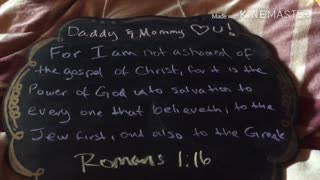 Made with KINEMASTER
Daddy & Mommy ♡ U!
For I am not ashamed of
the gospel of Christ, for it is the
Power of God unto salvation to
every one that believeth; to the
Jew first, and also to the Greek
Romans 1:16